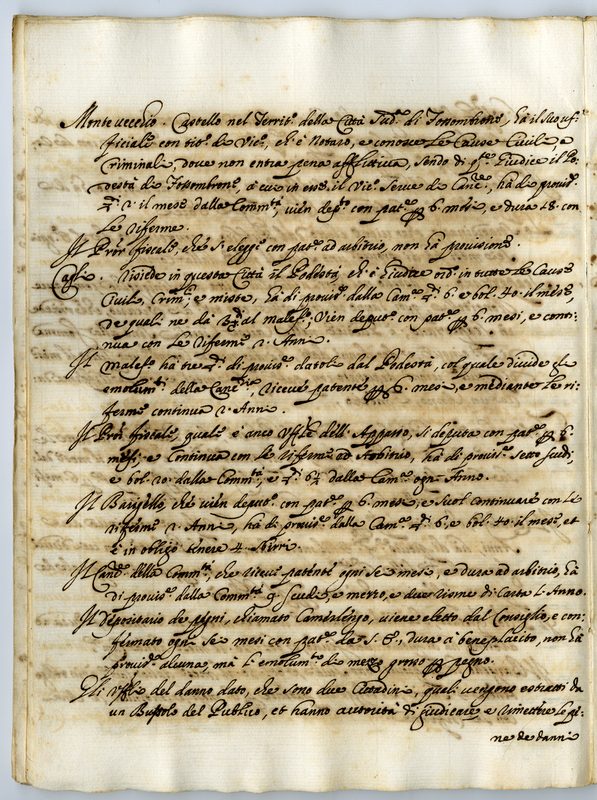 Montevecchio. Castello nel Territ.o della Città Sud.a di Fossombrone, hà il suo uf:
ficiale con tit.o di Vic.o, ch'è Notaro, e conosce le Cause Civili, e
Criminali, dove non entra pena afflittiva, sendo di q.ste Giudice il Po:
destà di Fossombrone, à cui in esse il Vic.o serve de Canc.e, hà de provis.e
il mese dalla Comm.tà, vien dep.to con pat.e 6. mesi, e dura 18. con
le Riferme.
Il Pror fiscale, che si elegge con pat.e ad arbitrio, non hà provisione.
Cagli. Risiede in questa Città il Podestà, ch'è Giudice ord.o in tutte le Cause
Civile, Crim.li e miste, hà di provis.e dalla Cam.a 6. e bol. 40. il mese,
de quali ne dà al malef.o; Vien deput.o con pat.e 6. mesi, e conti:
nua con le Riferme 2. Anni.
Il Malef.o hà tre di provis.e datole dal Podestà, col quale divide gli
emolum.ti della Canc.ria, riceve patente 6. mesi, e mediante le ri:
ferme continua 2. Anni.
Il Pror fiscale, quale è anco Uff.le dell'Appasso, si deputa con pat.e 6.
mesi, e continua con le Riferme ad Arbitrio, hà di provis.e sette scudi,
e bol. 20. dalla Comm.tà, e dalla Cam.a ogn'Anno.
Il Barigello, che vien deput.o con pat.e 6. mesi, e suol continuare con le
riferme 2. Anni, hà di provis.e dalla Cam.a 6. e bol. 40. il mese, et
è in obligo tenere 4. sbirri.
Il Canc.e della Comm.tà, che riceve patente ogni sei mesi, e dura ad arbitrio, hà
di provis.e dalla Comm.tà 9. scudi, e mezzo, e due Risme di Carta l'Anno.
Il Depositario de pegni, chiamato Camerlengo, viene eletto dal Consiglio, e con:
firmato ogni sei mesi con pat.e da S. E., dura à beneplacito, non hà
provis.e alcuna, mà l'emolum.to di mezzo grosso pegno.
Gli Uff.li del danno dato, che sono due Cittadini, quali vengono estratti da
un Bussolo del Publico, et hanno autorità di giudicare e rimettere le pe:
ne de danni